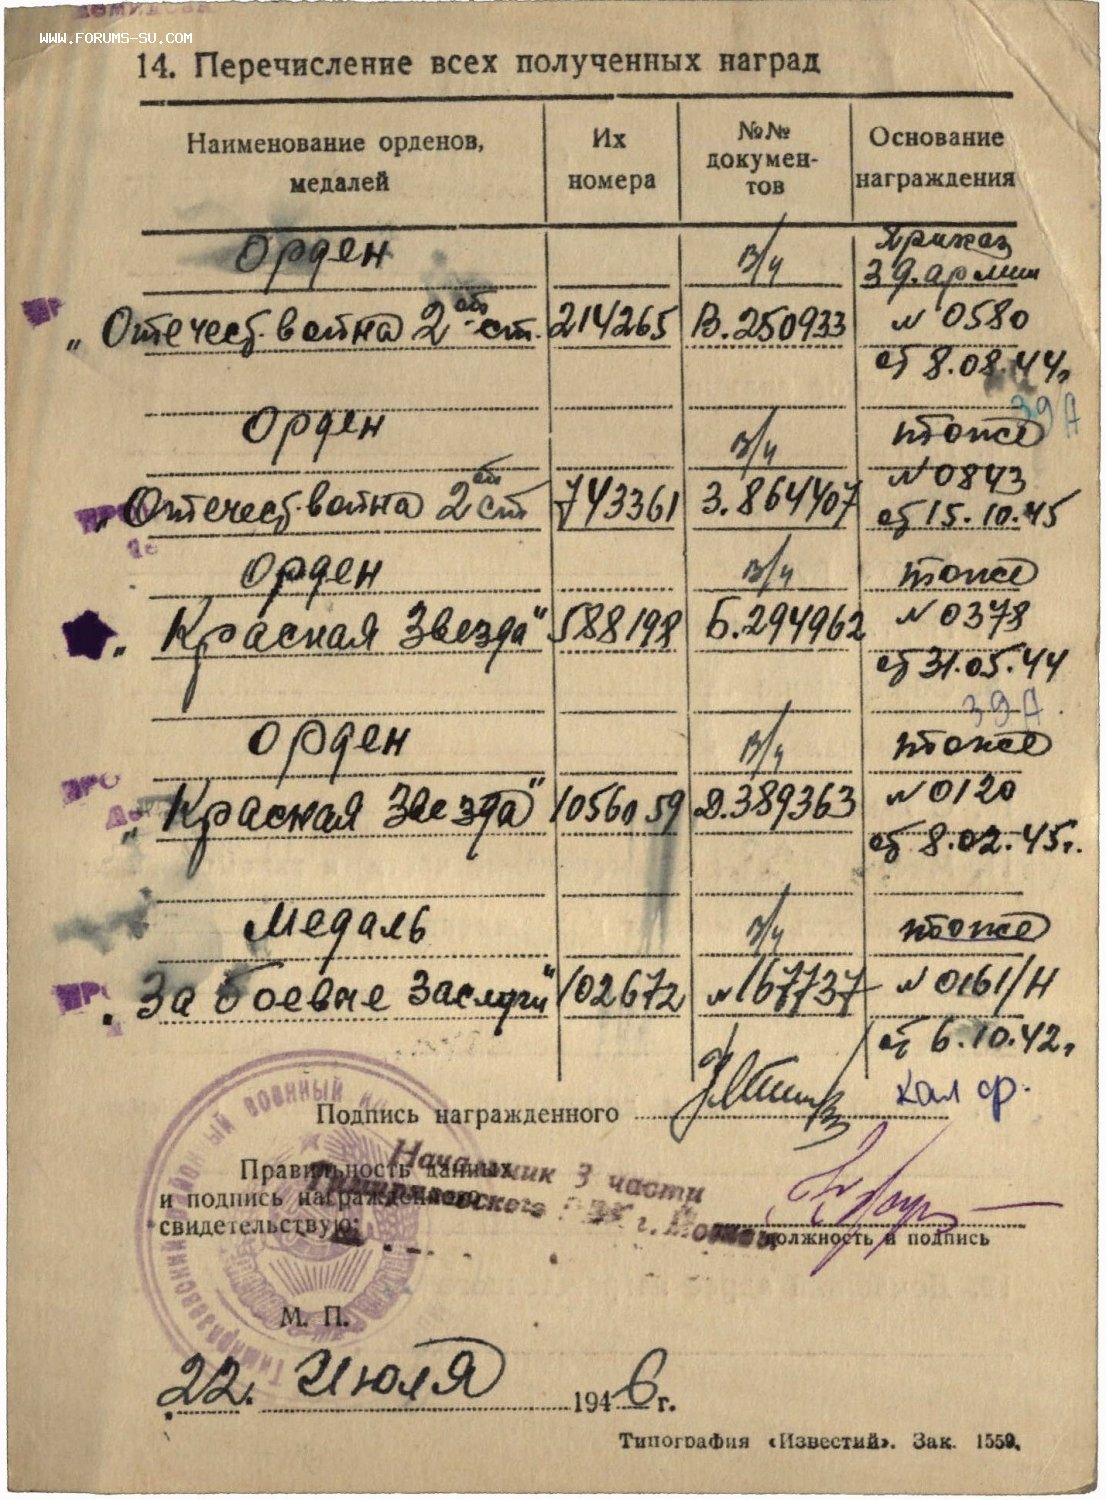 WWW.FORUMS-SU.COM
14. Перечисление всех полученных наград
Наименование орденов, медалей
Их номера
№№ докумен-тов
Основание награждения
Орден в/ч Приказ
39.армии
„Отечеств. война 2 ой ст. 214265 В.250933 N 0580
от 8.08.44г.
39 А
Орден в/ч тоже
N 0843
„Отечеств. война 2 ой ст 743361 З.864407 от 15.10.45
Орден в/ч тоже
„Красная Звезда" 588198 Б.294962 N 0378
от 31.05.44
39 А.
Орден в/ч тоже
„Красная Звезда" 1056059 Д.389363 N 0120
от 8.02.45г.
Медаль в/ч тоже
„За боевые заслуги" 102672 N 167737 N 0161/Н
от 6.10.42г.
Подпись награжденного
кал ф.
Правильность данных
и подпись награжденного
свидетельствую:
Начальник 3 части
Тимирязевского г. Москвы
должность и подпись
Тимирязевский районный военный
М. П.
22. Июля 1946 г.
Типография «Известий». Зак. 1559.